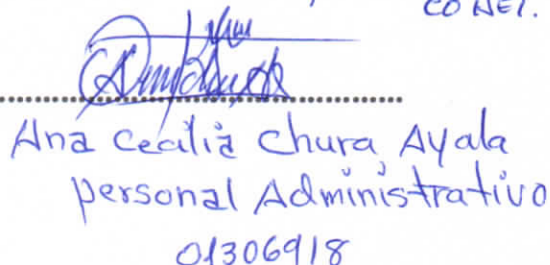 CONEI.
Ana Cecilia Chura Ayala
personal Administrativo
01306918